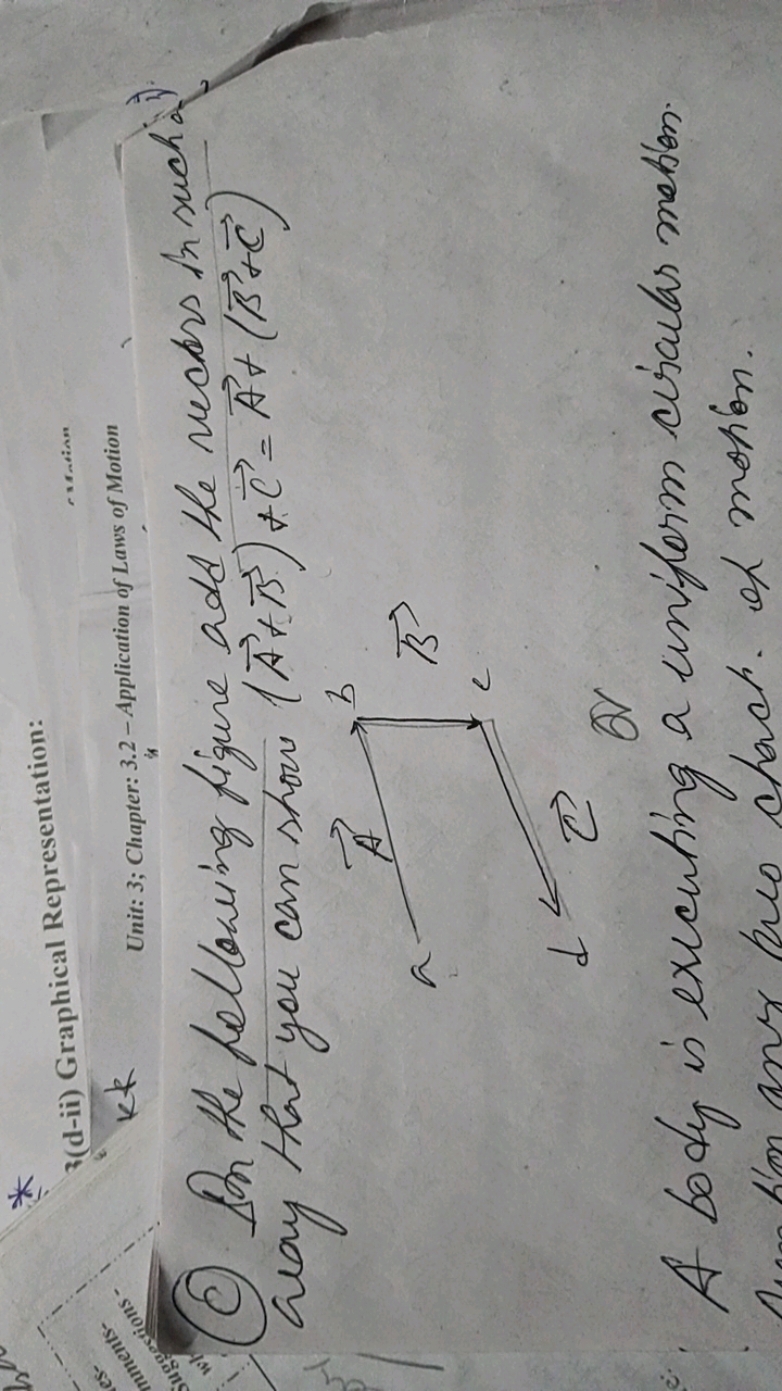 3(d-ii) Graphical Representation:
Unit: 3; Chapter: 3.2 – Application of Laws of Motion
kk
C In the following figure add the vectors in such a
way that you can show (A⃗ + B⃗) + C⃗ = A⃗ + (B⃗ + C⃗)
A⃗
a
b
B⃗
c
C⃗
d
Or
A body is executing a uniform circular motion.
any two charact. of motion.